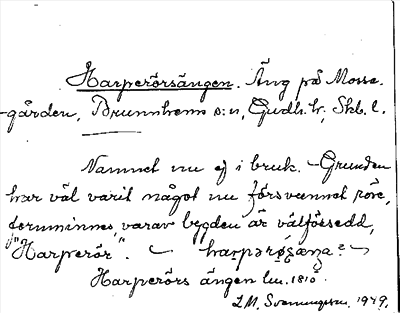 Harperörsängen. Äng på Mosse-
gården, Brunnhems s:n, Gudh. hr, Skb. l.
Namnet nu ej i bruk. – Grunden
har väl varit något nu försvunnet röre,
fornminnes, varav bygden är välförsedd,
"Harperör". –
Harperörs ängen lm. 1810.
L.M. Svenungsson. 1949.